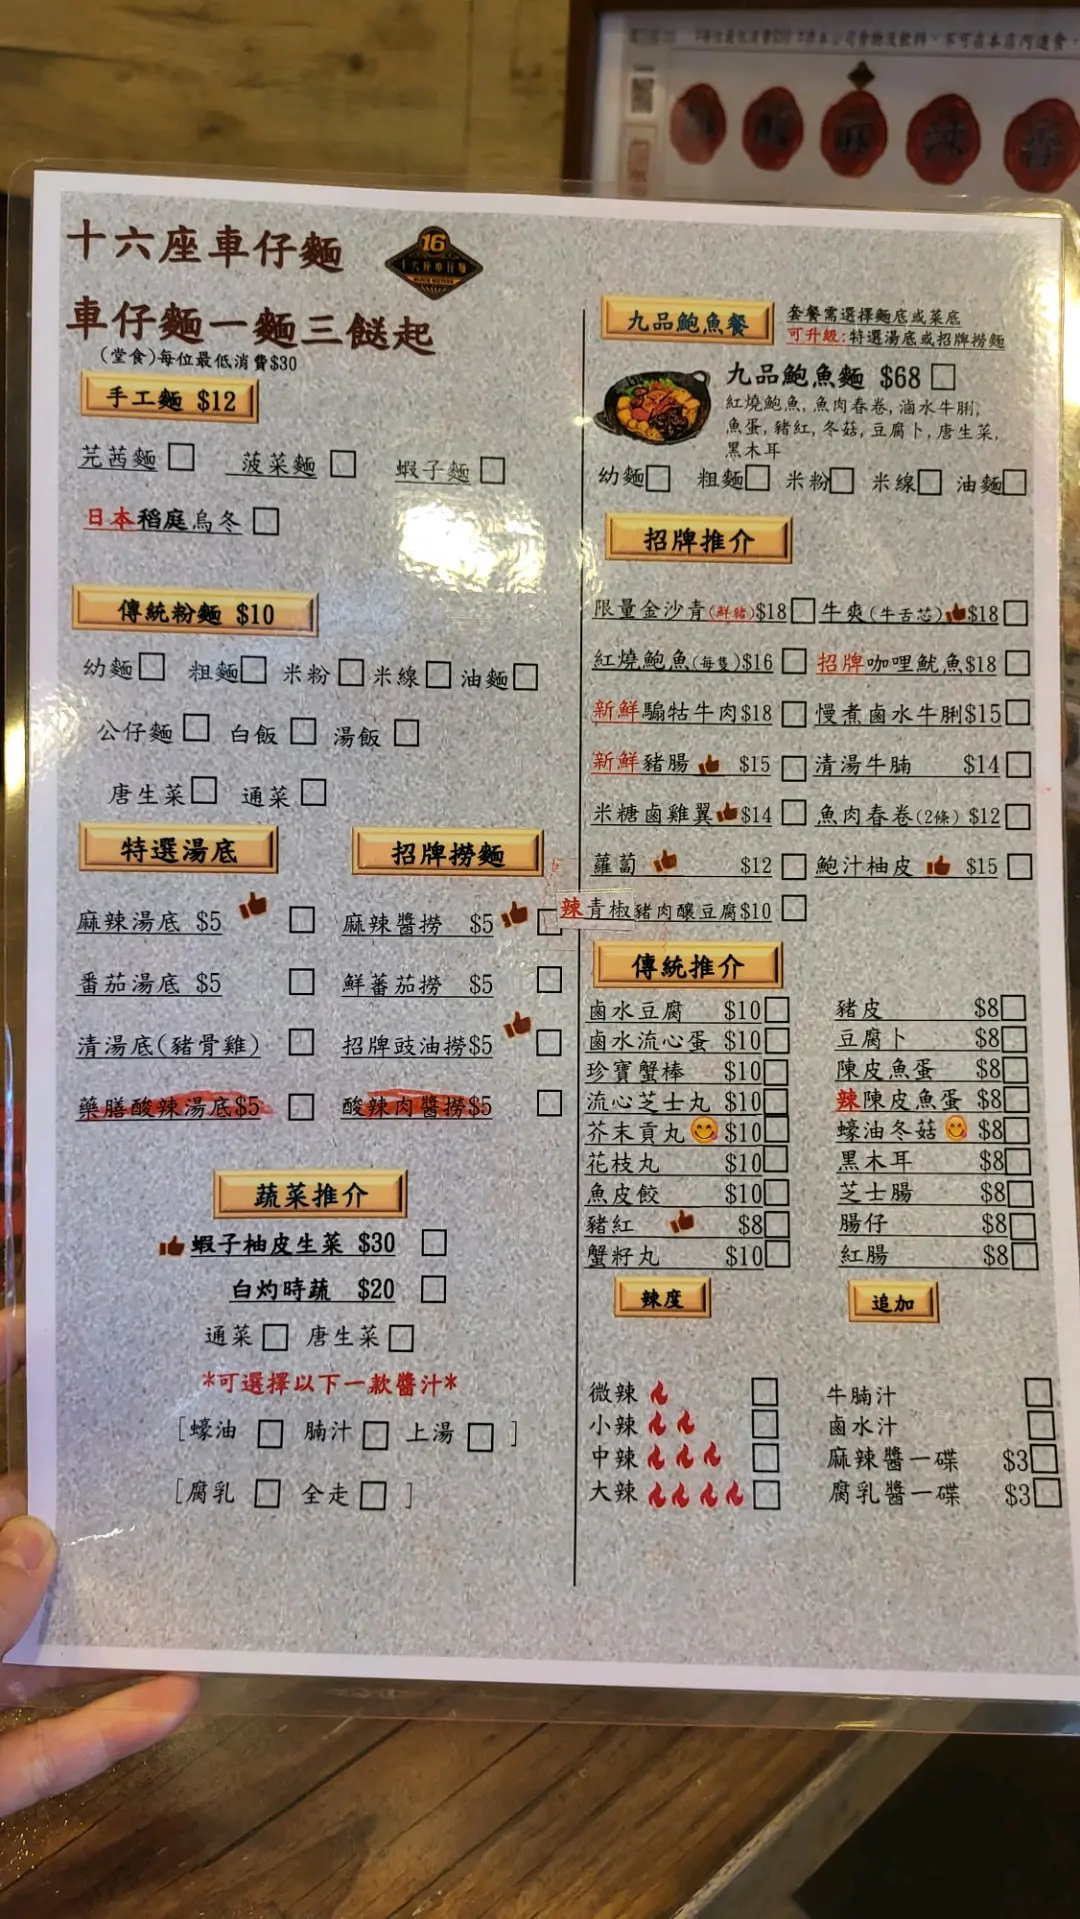 十六座車仔麵
16
十六座車仔麵
車仔麵一麵三餸起
(堂食)每位最低消費$30
手工麵 $12
芫茜麵 菠菜麵 蝦子麵
日本稻庭烏冬
傳統粉麵 $10
幼麵 粗麵 米粉 米線 油麵
公仔麵 白飯 湯飯
唐生菜 通菜
特選湯底
麻辣湯底 $5
番茄湯底 $5
清湯底(豬骨雞)
藥膳酸辣湯底$5
招牌撈麵
麻辣醬撈 $5
鮮蕃茄撈 $5
招牌豉油撈$5
酸辣肉醬撈$5
蔬菜推介
蝦子柚皮生菜 $30
白灼時蔬 $20
通菜 唐生菜
*可選擇以下一款醬汁*
[蠔油 腩汁 上湯 ]
[腐乳 全走 ]
九品鮑魚餐
套餐需選擇麵底或菜底
可升級:特選湯底或招牌撈麵
九品鮑魚麵 $68
紅燒鮑魚,魚肉春卷,滷水牛脷,
魚蛋,豬紅,冬菇,豆腐卜,唐生菜,
黑木耳
幼麵 粗麵 米粉 米線 油麵
招牌推介
限量金沙青(鮮豬)$18 牛爽(牛舌芯)$18
紅燒鮑魚(每隻)$16 招牌咖哩魷魚$18
新鮮騸牯牛肉$18 慢煮鹵水牛脷$15
新鮮豬腸 $15 清湯牛腩 $14
米糖鹵雞翼 $14 魚肉春卷(2條) $12
蘿蔔 $12 鮑汁柚皮 $15
辣青椒豬肉釀豆腐$10
傳統推介
鹵水豆腐 $10 豬皮 $8
鹵水流心蛋 $10 豆腐卜 $8
珍寶蟹棒 $10 陳皮魚蛋 $8
流心芝士丸 $10 辣陳皮魚蛋 $8
芥末貢丸 $10 蠔油冬菇 $8
花枝丸 $10 黑木耳 $8
魚皮餃 $10 芝士腸 $8
豬紅 $8 腸仔 $8
蟹籽丸 $10 紅腸 $8
辣度
微辣
小辣
中辣
大辣
追加
牛腩汁
鹵水汁
麻辣醬一碟 $3
腐乳醬一碟 $3